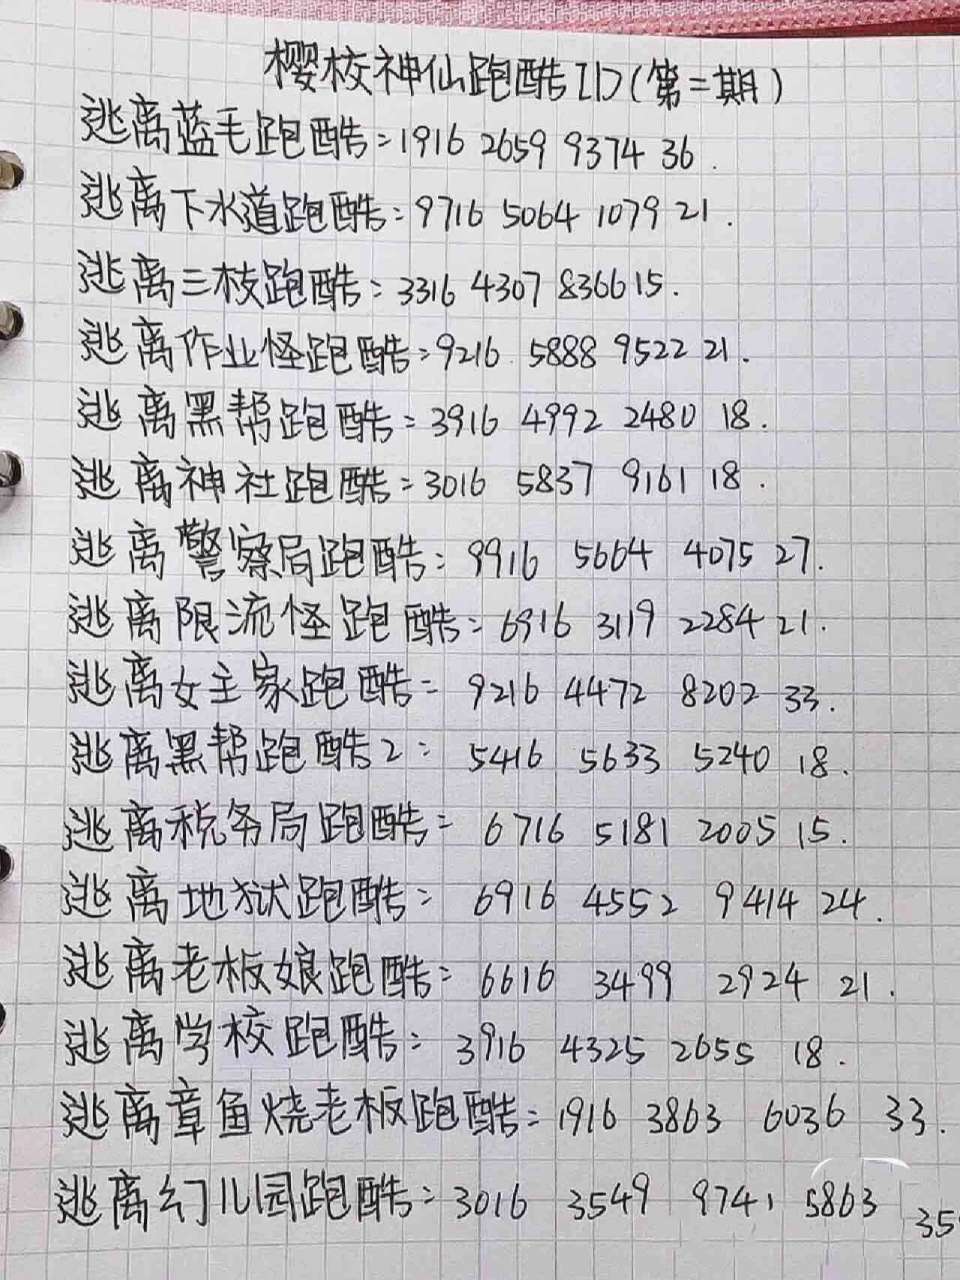 樱校神仙跑酷ID(第二期)
逃离蓝毛跑酷:1916 2659 9374 36.
逃离下水道跑酷:9716 5064 1079 21.
逃离三枝跑酷:3316 4307 8366 15.
逃离作业怪跑酷:9216 5888 9522 21.
逃离黑帮跑酷:3916 4992 2480 18.
逃离神社跑酷:3016 5837 9161 18.
逃离警察局跑酷:9916 5664 4075 27.
逃离限流怪跑酷:6916 3119 2284 21.
逃离女主家跑酷:9216 4472 8202 33.
逃离黑帮跑酷2:5416 5633 5240 18.
逃离税务局跑酷:6716 5181 2005 15.
逃离地狱跑酷:6916 4552 9414 24.
逃离老板娘跑酷:6616 3499 2924 21.
逃离学校跑酷:3916 4325 2655 18.
逃离章鱼烧老板跑酷:1916 3863 6036 33.
逃离幻儿园跑酷:3016 3549 9741 5863 35